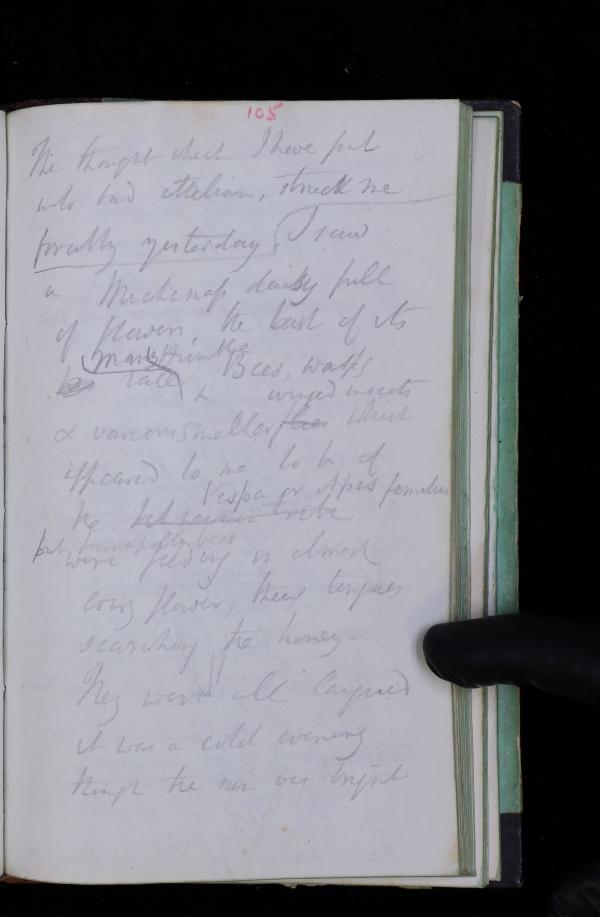 105
The thought which I have put
into bad Italian, struck me
forcibly yesterday, I saw
a Michelmas daisy full
of flowers the last of its
race many Humble Bees, wasps
& winged insects
& various smaller flies which
appeared to me to be of
Vespa or Apis families
the tribe
but principally bees
were feeding in almost
every flower, their tongues
searching the honey
They were all languid
it was a cold evening
though the sun was bright